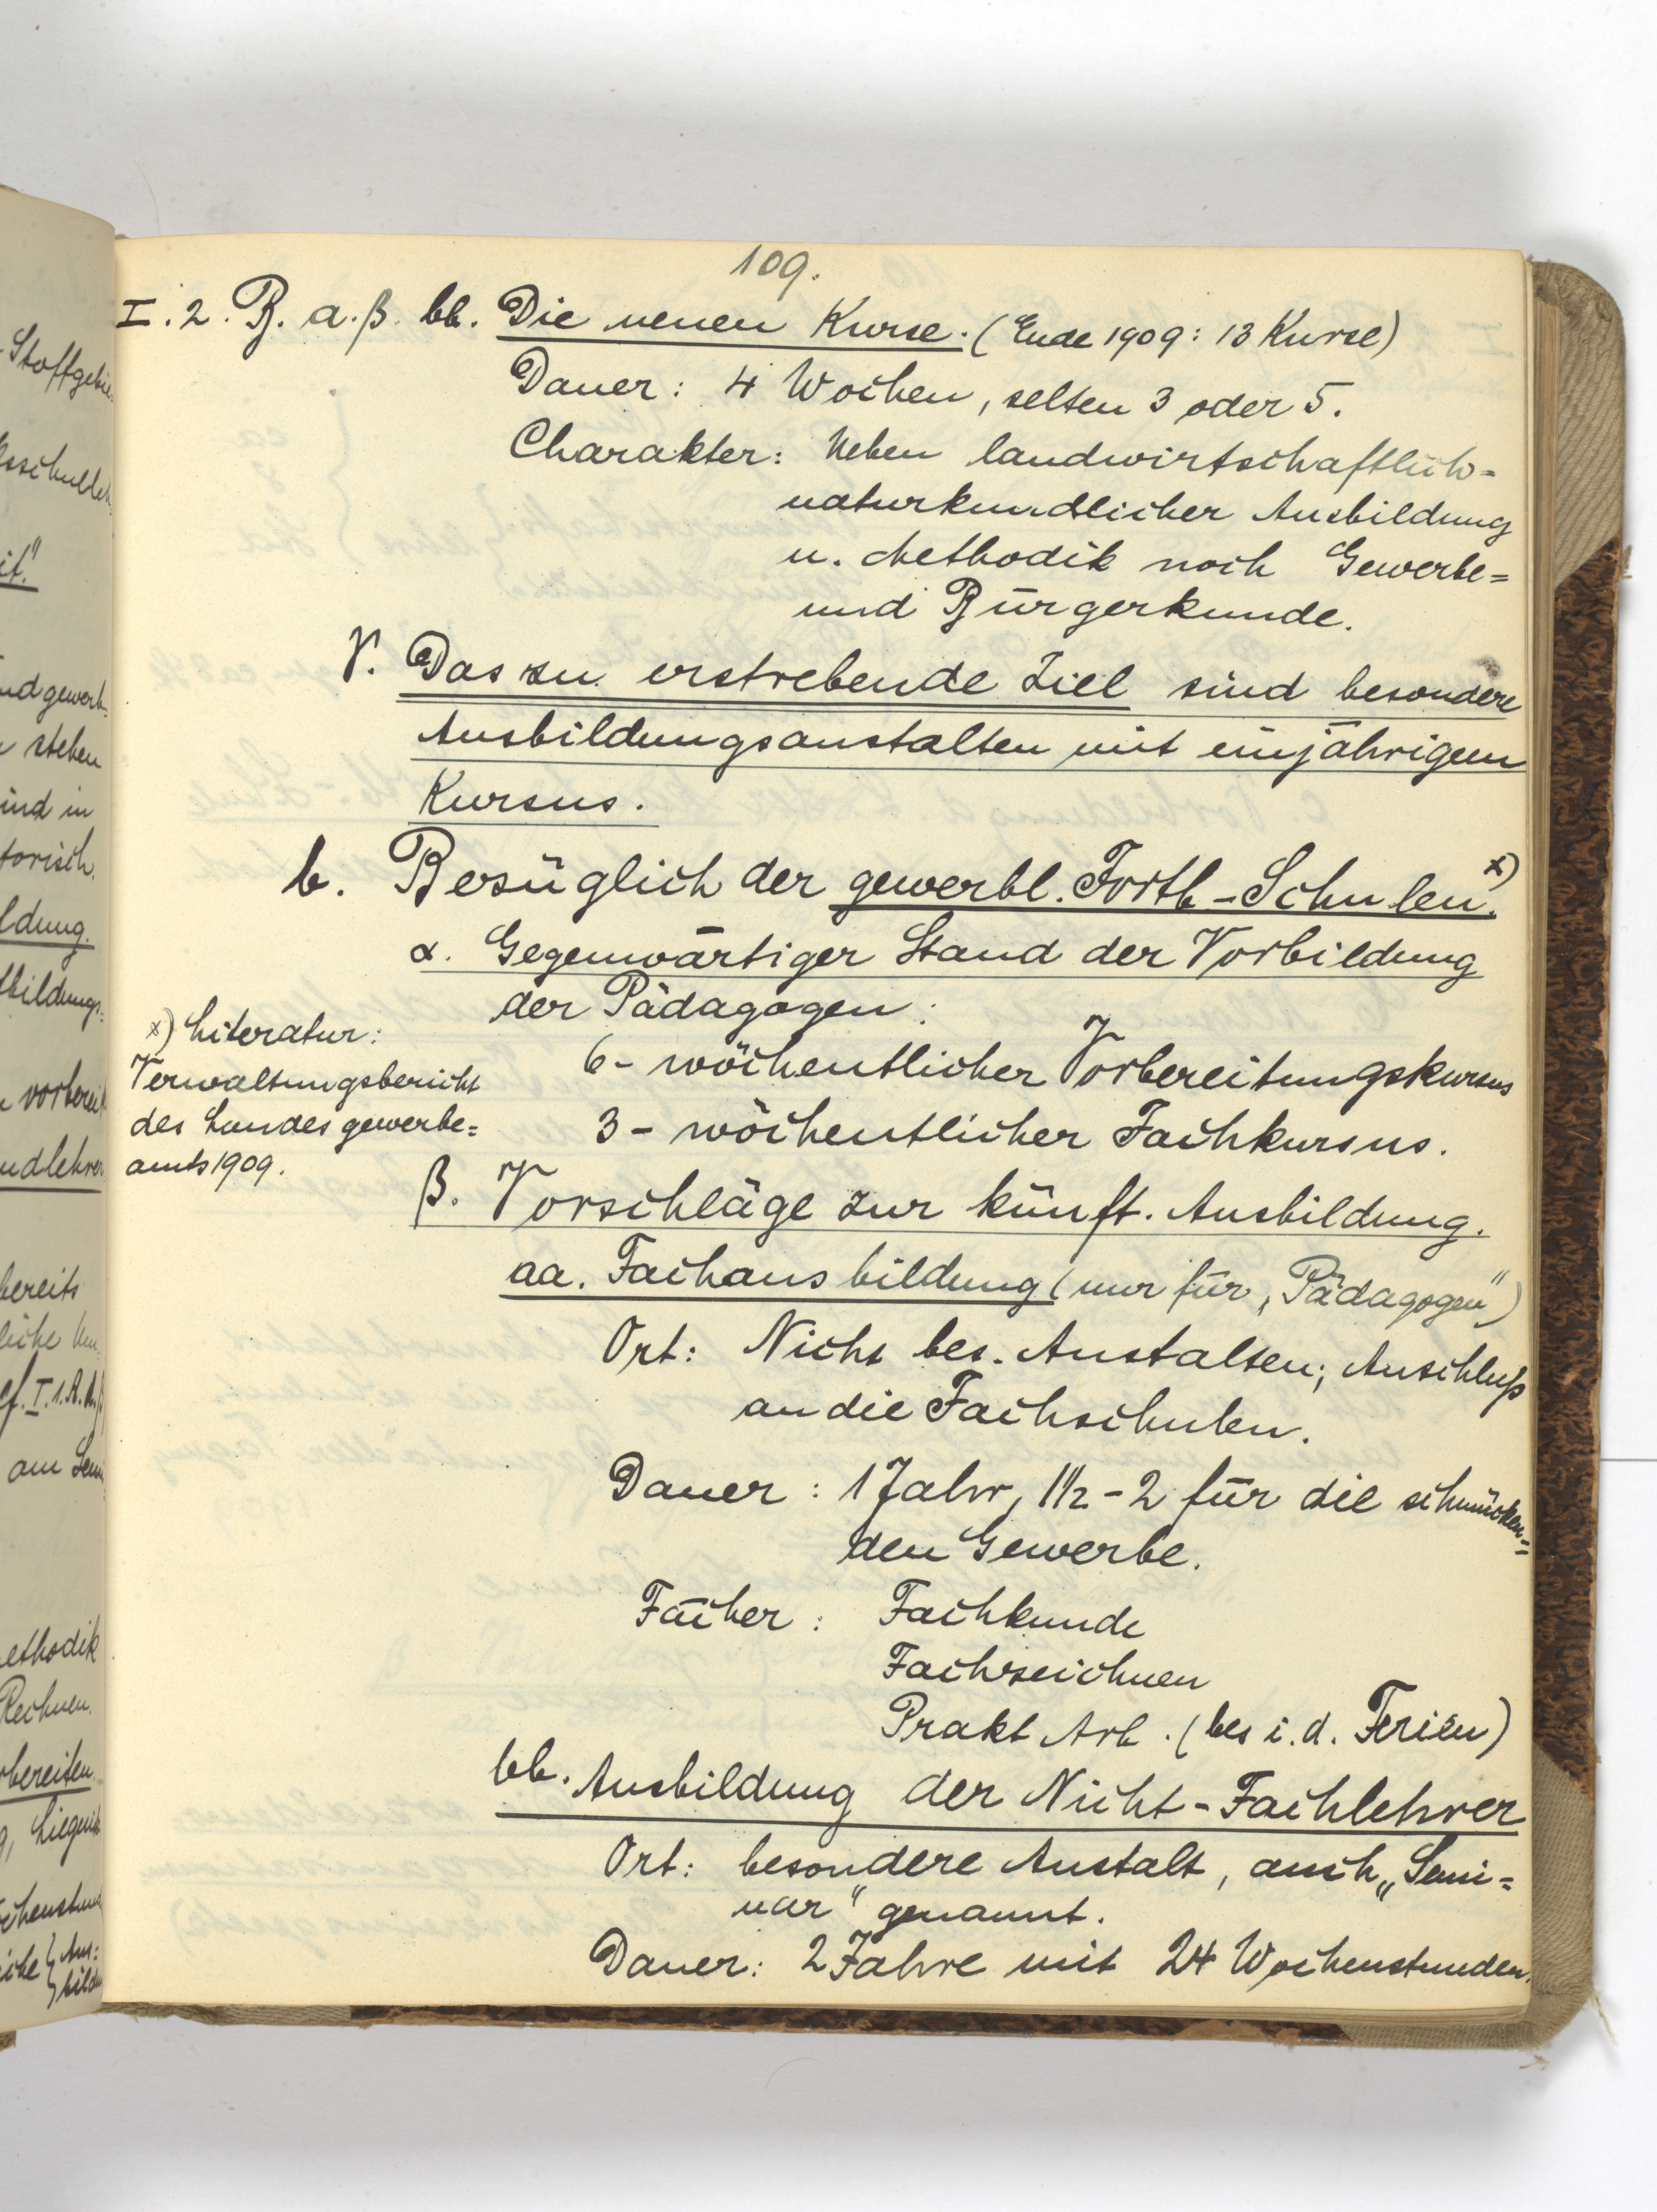 109.
I. 2. B. a. β. bb. Die neuen Kurse. (Ende 1909: 13 Kurse)
Dauer: 4 Wochen, selten 3 oder 5.
Charakter: Neben landwirtschaftlich=
naturkundlicher Ausbildung
u. Methodik noch Gewerbe=
und Bürgerkunde.
γ. Das zu erstrebende Ziel sind besondere
Ausbildungsanstalten mit einjährigem
Kursus.
b. Bezüglich der gewerbl. Fortb-Schulen. x)
α. Gegenwärtiger Stand der Vorbildung
der Pädagogen:
6- wöchentlicher Vorbereitungskursus
3- wöchentlicher Fachkursus.
x) Literatur:
Verwaltungsbericht
des Landesgewerbe=
amts 1909.
β. Vorschläge zur künft. Ausbildung.
aa. Fachausbildung (nur für „Pädagogen")
Ort: Nicht bes. Anstalten; Anschluß
an die Fachschulen.
Dauer: 1 Jahr, 1 1/2 - 2 für die schmücken=
den Gewerbe.
Fächer: Fachkunde
Fachzeichnen
Prakt Arb. (bes i. d. Ferien)
bb. Ausbildung der Nicht-Fachlehrer
Ort: besondere Anstalt, auch „Semi=
nar" genannt.
Dauer: 2 Jahre mit 24 Wochenstunden.
Stoffgebie
it."
nd gewerb=
stehen
ind in
torisch.
ldung.
bildungs=
vorberei
ndlehrer
bereits
liche
cf. I. 1.
am Sem
ethodik
Rechnen.
rbereiten
Liegnitz
chenstund